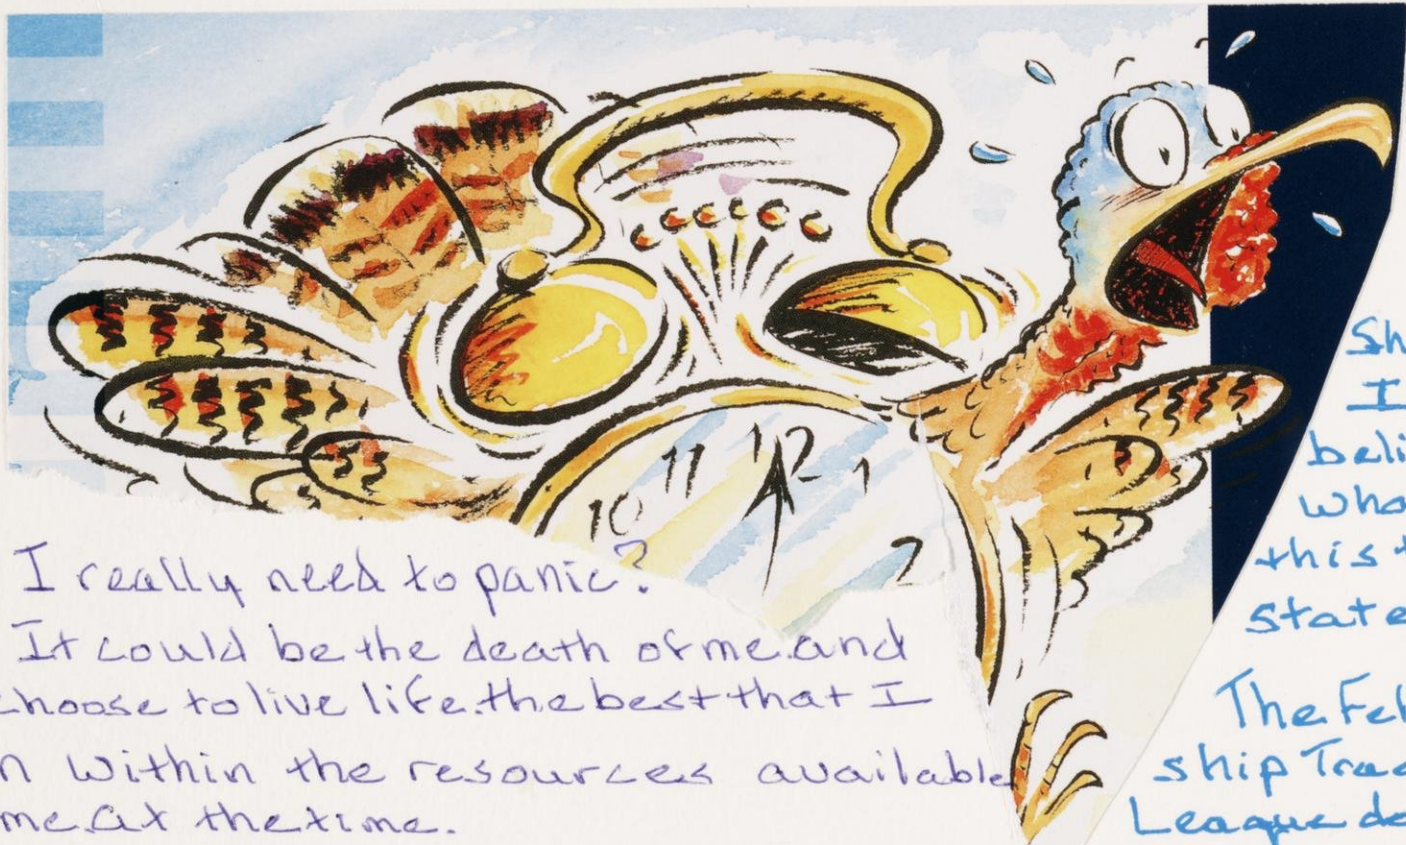 10 11 12 1 2
I really need to panic?
It could be the death of me and
choose to live life the best that I
n within the resources available
me at the time.
Sh
I
beli
who
this t
state
The Fel
ship Trac
League de